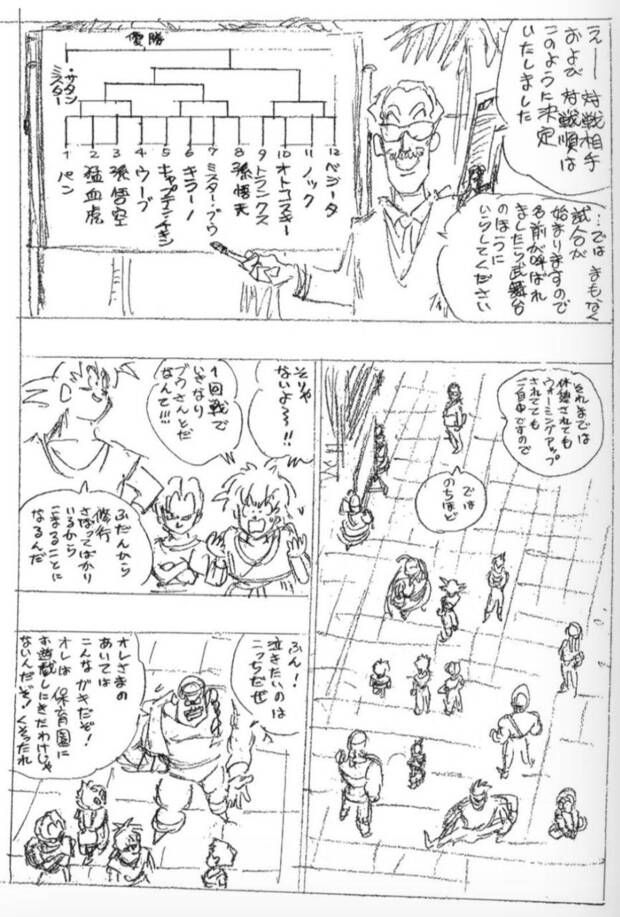 えー 対戦相手
および 対戦順は
このように決定
いたしました
優勝
ミスター・
サタン
1 パン
2 猛血虎
3 孫悟空
4 ウーブ
5 キャプテン・チキン
6 キラーノ
7 ミスター・ブウ
8 孫悟天
9 トランクス
10 オトコスキー
11 ノック
12 ベジータ
…では まもなく
試合が
始まりますので
名前が呼ばれ
ましたら武舞台
のほうに
いらしてください
それまでは
休憩されても
ウォーミングアップ
されてても
ご自由ですので
では
のちほど
そりゃ
ないよ〜〜!!
1回戦で
いきなり
ブウさんとだ
なんて!!!
ふだんから
修行
さぼってばかり
いるから
こまることに
なるんだ
ふん!
泣きたいのは
こっちだぜ
オレさまの
あいては
こんなガキだぞ!
オレは 保育園に
お遊戯しにきたわけじゃ
ないんだぞ! くそったれ